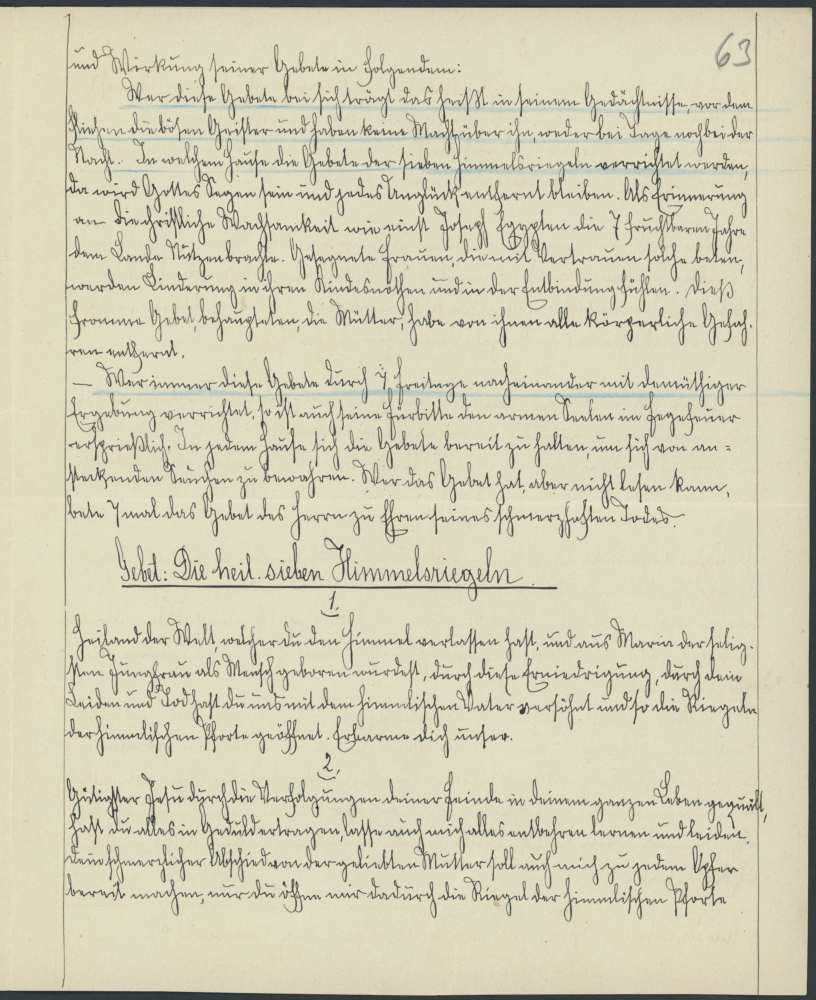 63
und Wirkung seiner Gebete in Folgendem:
Wer diese Gebete bei sich trägt das heißt in seinem Gedächtnisse, vor dem
fliehen die bösen Geister und haben keine Macht über ihn, weder bei Tage noch bei der
Nacht. In welchem Hause die Gebete der sieben Himmelsriegeln verrichtet werden,
da wird Gottes Segen sein und jedes Unglück entfernt bleiben. Als Erinnerung
an die christliche Wachsamkeit wie einst Joseph Egypten die 7 fruchtbaren Jahre
dem Lande Nutzen brachte. Gesegnete Frauen, die mit Vertrauen solche beten,
werden Linderung in ihren Kindesnöthen und in der Entbindung fühlen. Dieß
fromme Gebet, behaupteten, die Mütter, habe von ihnen alle körperliche Gefah-
ren entfernt.
— Wer immer diese Gebete durch 7 Freitage nacheinander mit demüthiger
Ergebung verrichtet, so ist auch seine Fürbitte den armen Seelen im Fegefeuer
ersprießlich. In jedem Hause sich die Gebete bereit zu halten, um sich von an=
steckenden Seuchen zu bewahren. Wer das Gebet hat, aber nicht lesen kann,
bete 7 mal das Gebet des Herrn zu Ehren seines schmerzhaften Todes.
Gebet: Die heil. sieben Himmelsriegeln.
1.
Heiland der Welt, welcher du den Himmel verlassen hast, und aus Maria der selig-
sten Jungfrau als Mensch geboren wurdest, durch diese Erniedrigung, durch dein
Leiden und Tod hast du uns mit dem himmlischen Vater versöhnt und so die Riegeln
der himmlischen Pforte geöffnet. Erbarme dich unser.
2.
Gütigster Jesu durch die Verfolgungen deiner Feinde in deinem ganzen Leben gequält,
hast du alles in Geduld ertragen, lasse auch mich alles entbehren lernen und leiden.
Dein schmerzlicher Abschied von der geliebten Mutter soll auch mich zu jedem Opfer
bereit machen, nur du öffne mir dadurch die Riegel der himmlischen Pforte